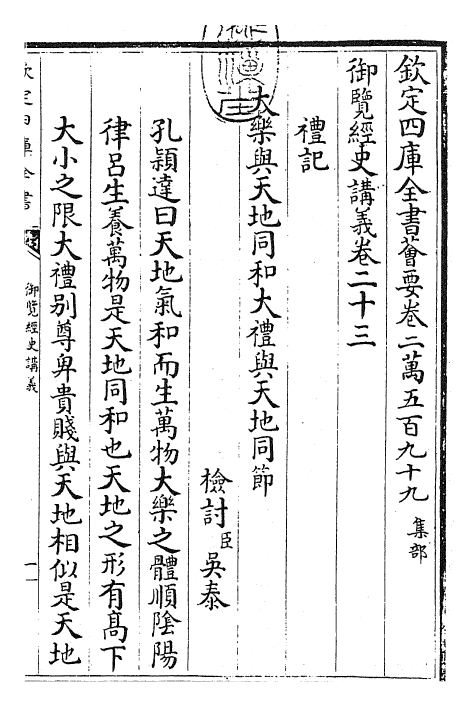 欽定四庫全書薈要卷二萬五百九十九 集部
御覽經史講義卷二十三
禮記
大樂與天地同和大禮與天地同節
檢討臣吳泰
孔穎達曰天地氣和而生萬物大樂之體順陰陽
律呂生養萬物是天地同和也天地之形有高下
大小之限大禮別尊卑貴賤與天地相似是天地
欽定四庫全書
御覽經史講義
一